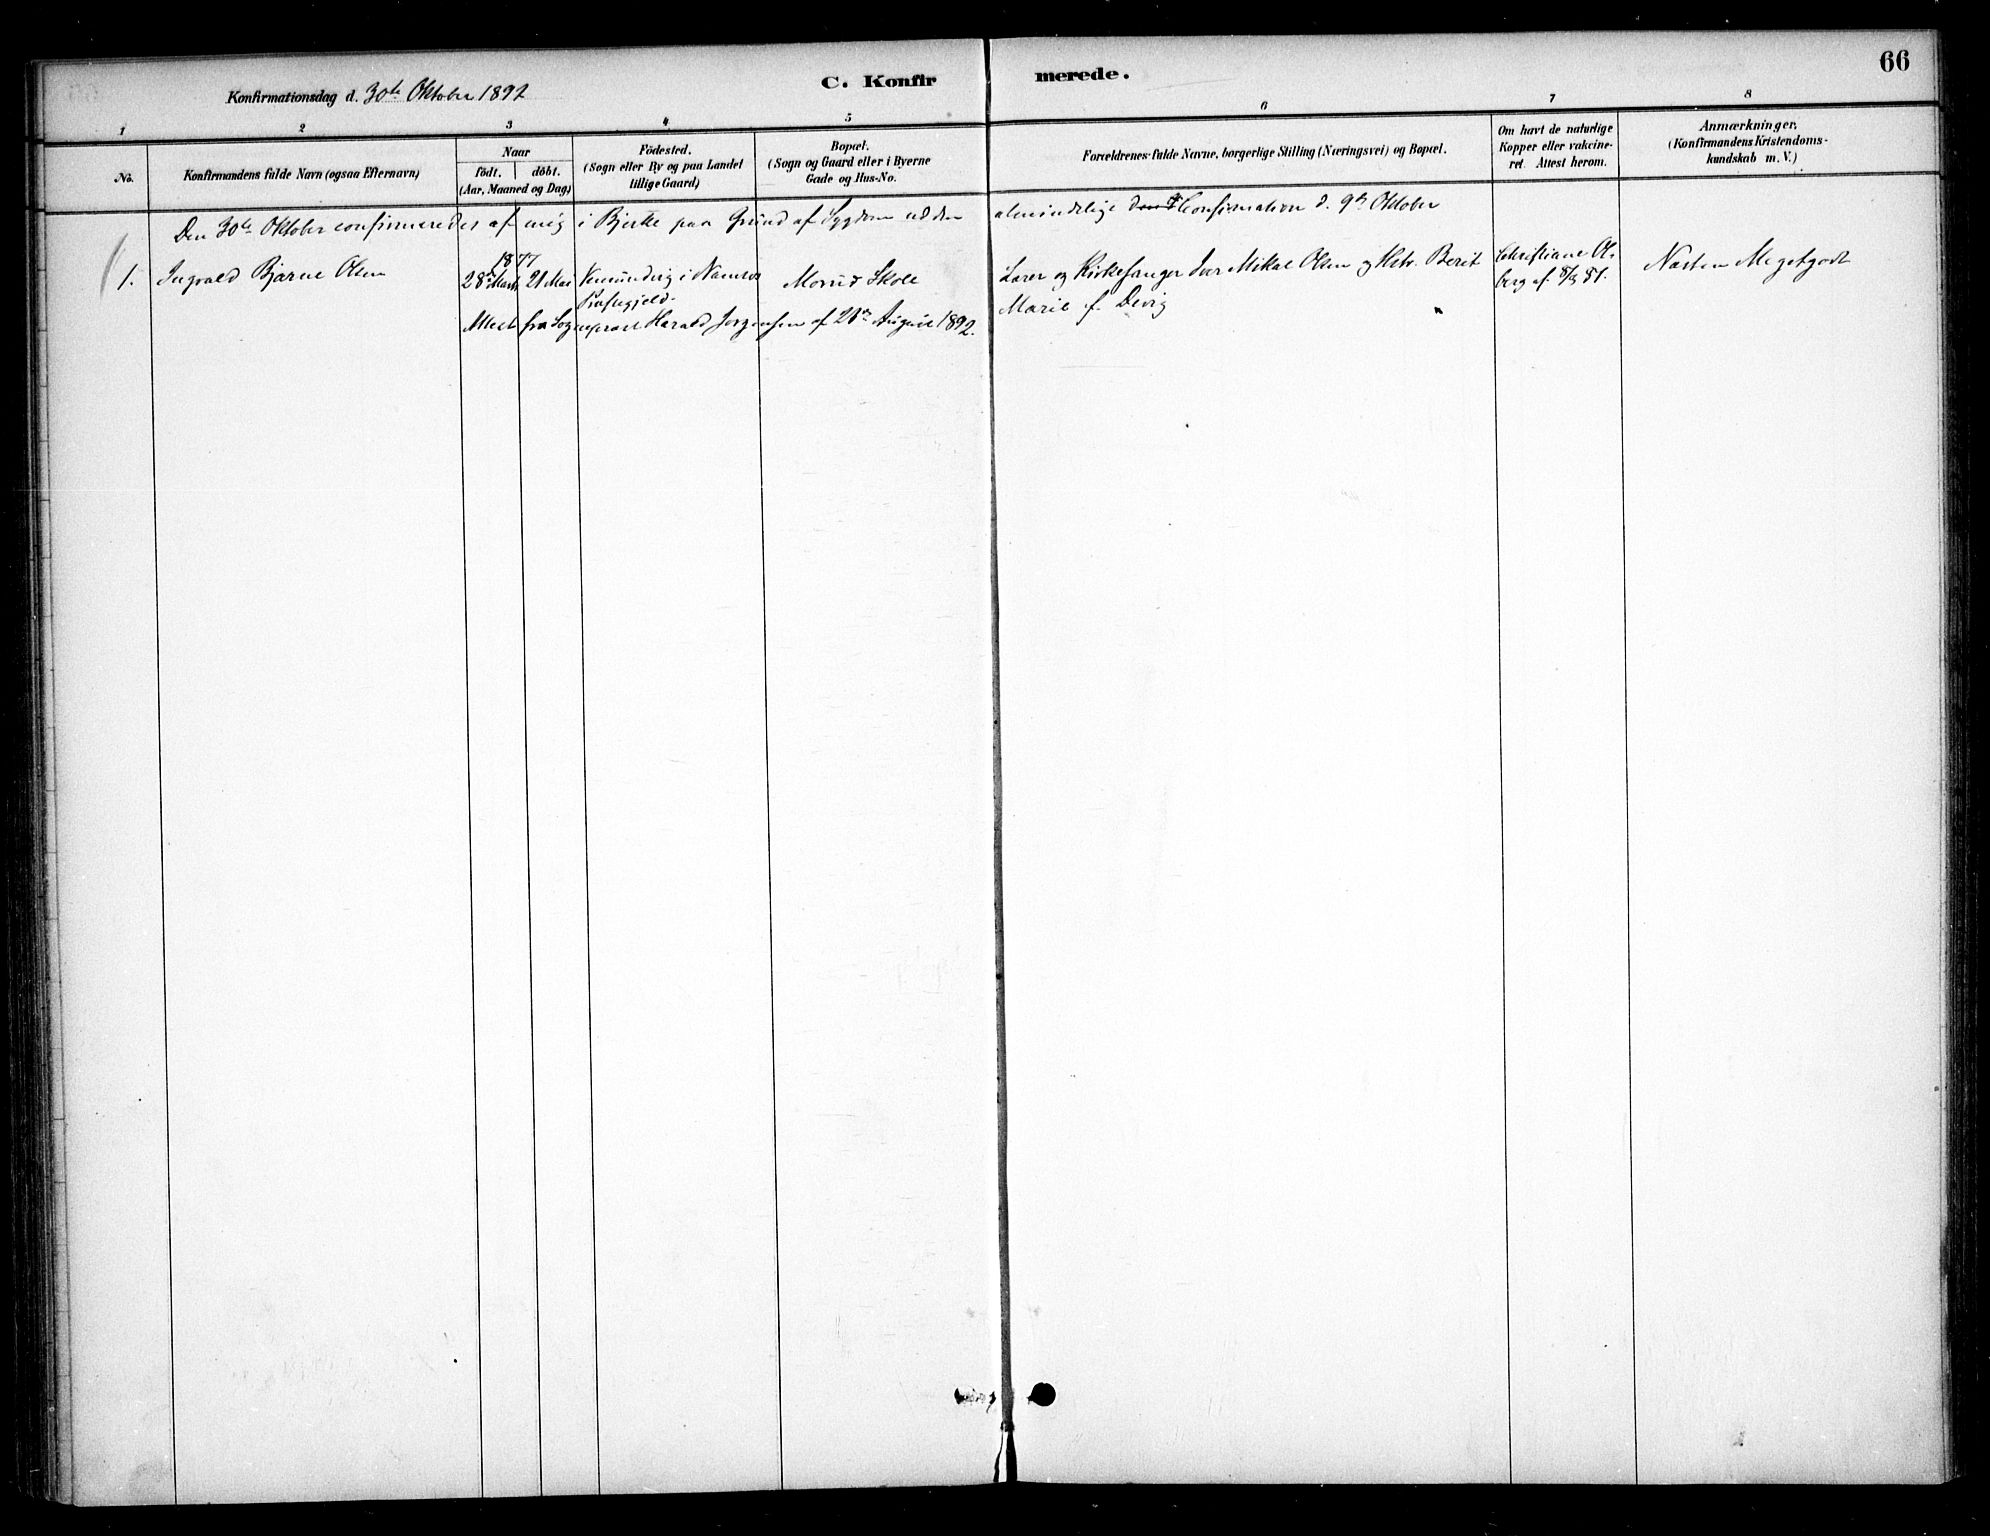 66
C. Konfirmerede.
Konfirmationsdag d. 30te Oktober 1892
1 2 3 4 5 6 7 8
No.
Konfirmandens fulde Navn (ogsaa Efternavn)
Naar
födt. döbt.
(Aar, Maaned og Dag)
Födested.
(Sogn eller By og paa Landet
tillige Gaard)
Bopæl.
(Sogn og Gaard eller i Byerne
Gade og Hus-No.
Forældrenes fulde Navne, borgerlige Stilling (Næringsvei) og Bopæl.
Om havt de naturlige
Kopper eller vakcine-
ret. Attest herom.
Anmærkninger.
(Konfirmandens Kristendoms-
kundskab m. V.)
Den 30te Oktober confirmeredes af mig i Bjerke paa Grund af Sygdom ved den almindelige Confirmation d. 9de Oktober
1877
1. Ingvald Bjarne Olsen
28de Marts
21 Mai
Vemundvig i Namsos
Præstegjeld
Morud Skole
Lærer og Kirkesanger Iver Mikal Olsen og Hstr. Berit
Marie f. Devig
Christiane Ol-
berg af 8/9 81.
Næsten Megetgodt
Attest fra Sogneprest Harald Jørgensen af 28de August 1892.